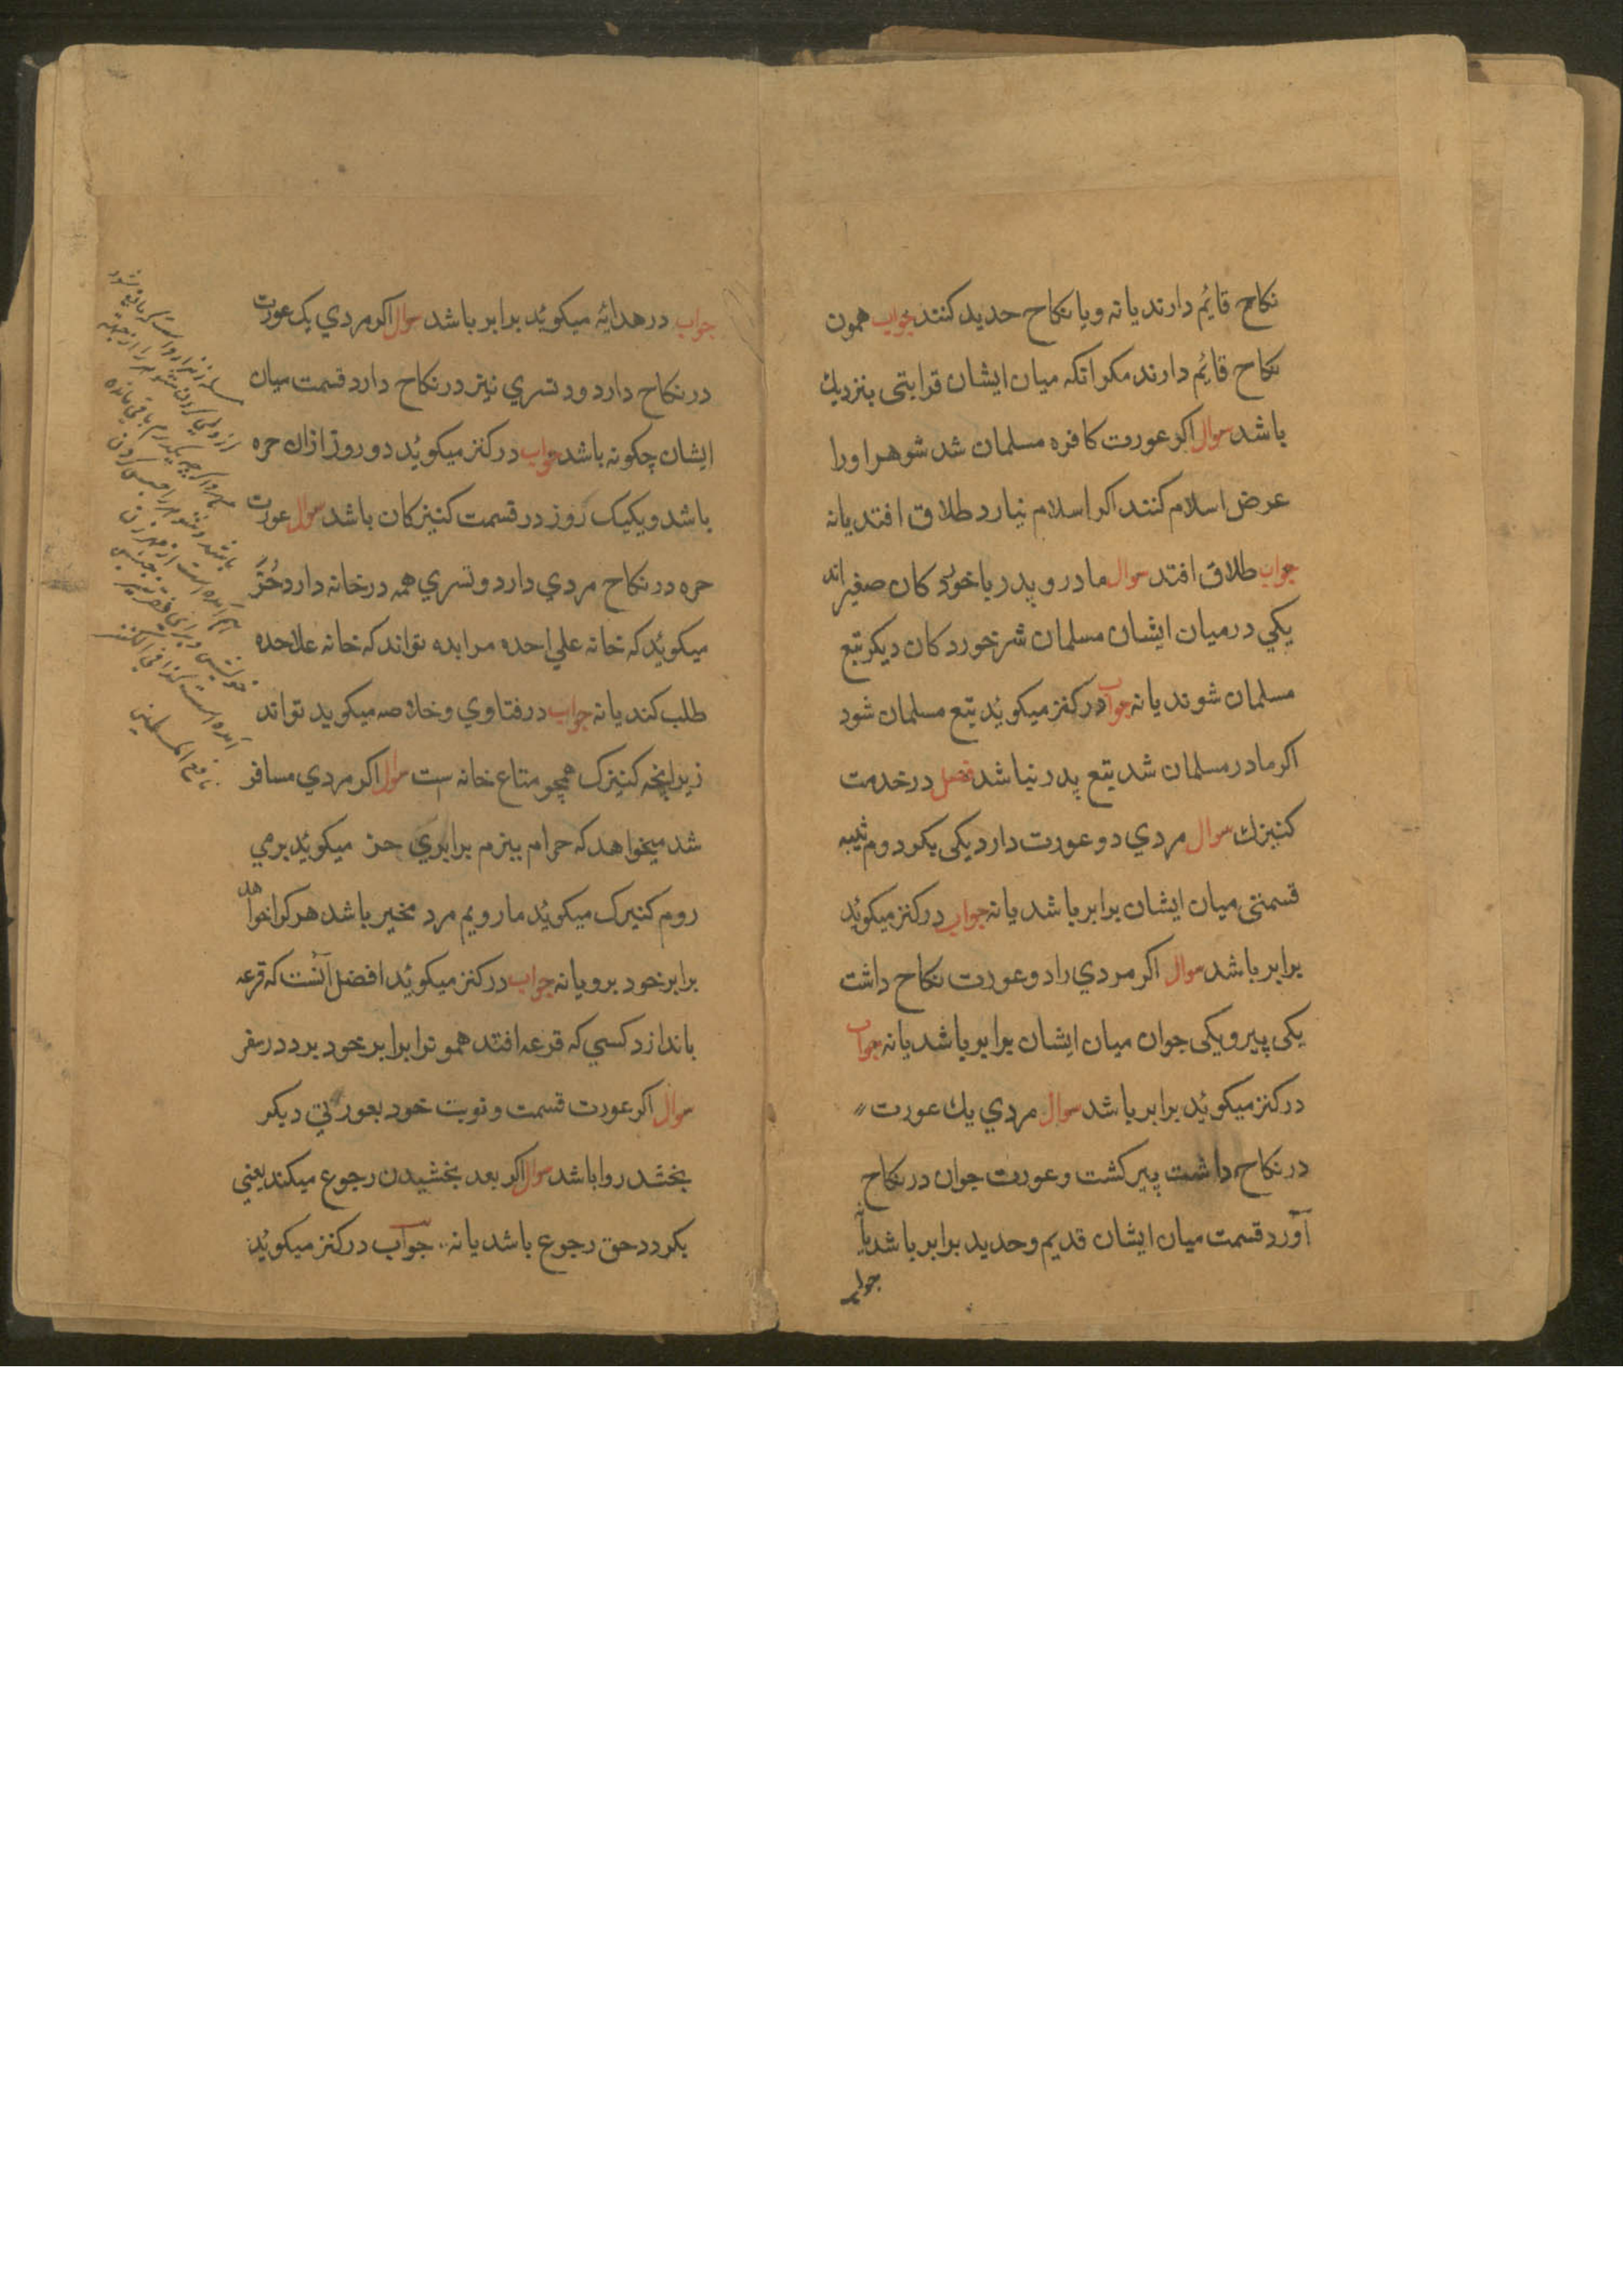 نکاح قایٔم دارند یا نه و یا نکاح حدید کنند جواب همون
نکاح قایٔم دارند مکر انکه میان ایشان قرابتی بنزدیك
باشد سوال اکر عورت کافره مسلمان شد شوهر اورا
عرض اسلام کنند اکر اسلام نیارد طلاق افتد یانه
جواب طلاق افتد سوال مادر و پدر با خورد کان صغیر اند
یکي در میان ایشان مسلمان شر خورد کان دیکر تبع
مسلمان شوند یا نه جواب در کنز میکویٔد تبع مسلمان شود
اکر مادر مسلمان شد تبع پدر نباشد فصل در خدمت
کنیزك سوال مردي دو عورت دارد یکی بکر دوم ثیبه
قسمتی میان ایشان برابر باشد یا نه جواب در کنز میکویٔد
برابر باشد سوال اکر مردي را دو عورت نکاح داشت
یکی پیر و یکی جوان میان ایشان برابر باشد یا نه جواب
در کنز میکویٔد برابر باشد سوال مردي یك عورت
در نکاح داشت پیر کشت و عورت جوان در نکاح
آورد قسمت میان ایشان قدیم و حدید برابر باشد یا
جواب
جواب در هدایٔه میکویٔد برابر باشد سوال اکر مردي یک عورت
در نکاح دارد و د تسري نیز در نکاح دارد قسمت میان
ایشان چکونه باشد جواب در کنز میکویٔد دو روز ازان حره
باشد و یکیک روز در قسمت کنیز کان باشد سوال عورت
حره در نکاح مردي دارد و تسري همه در خانه دارد حُرّ
میکویٔد که خانه علي احده مرا بده تواند که خانه علاحده
طلب کند یا نه جواب در فتاوي و خلاصه میکوید تواند
زیرانچه کنیزک همچو متاع خانه است سوال اکر مردي مسافر
شد میخواهد که حرام ببرم برابري حز میکویٔد برمي
روم کنیرک میکویٔد ما رویم مرد مخیر باشد هر کرا خواهد
برابر خود برو یا نه جواب در کنز میکویٔد افضل آنست که قرعه
باندازد کسي که قرعه افتد همونرا برابر خود برد در سفر
سوال اکر عورت قسمت و نوبت خود بعورتي دیکر
بخشد روا باشد سوال اکر بعد بخشیدن رجوع میکند یعني
بکردد حق رجوع باشد یا نه جواب در کنز میکویٔد